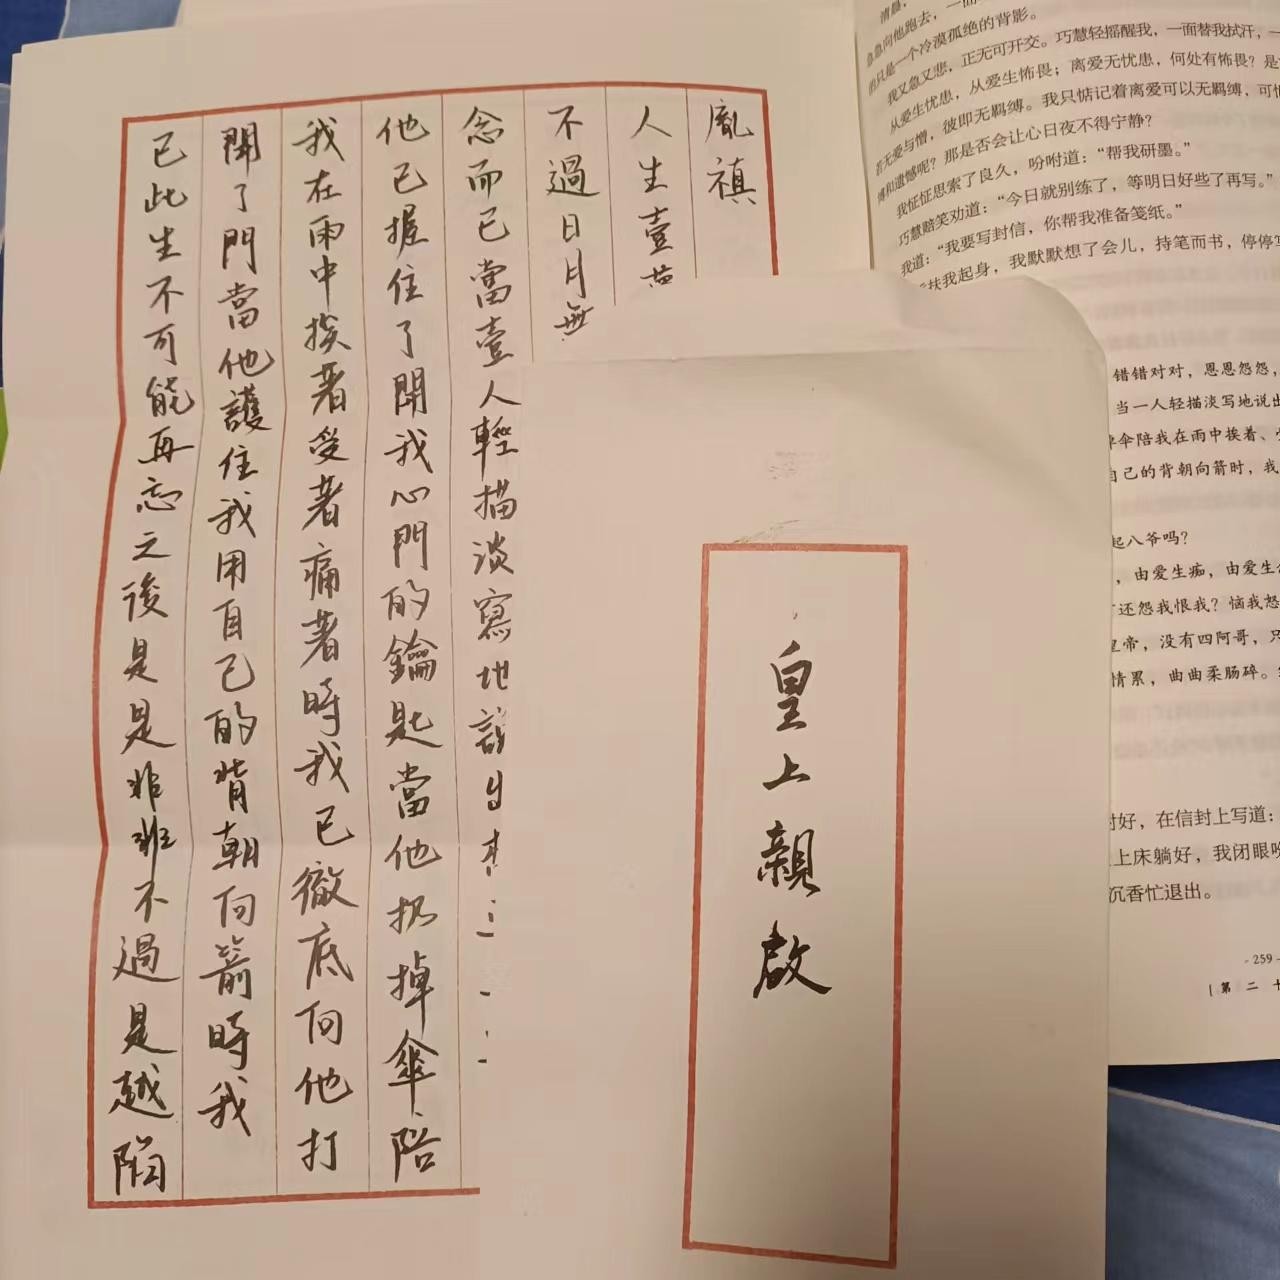 胤禛
人生壹
不過日月無
念而已當壹人輕描淡寫地說出
他已握住了開我心門的鑰匙當他扔掉傘陪
我在雨中挨著受著痛著時我已徹底向他打
開了門當他護住我用自己的背朝向箭時我
已此生不可能再忘之後是是非非不過是越陷
皇上親啟
清晨，
急急向他跑去，一面
的只是一个冷漠孤绝的背影。
我又急又悲，正无可开交。巧慧轻摇醒我，一面替我拭汗，一
从爱生忧患，从爱生怖畏；离爱无忧患，何处有怖畏？是
若无爱与憎，彼即无羁缚。我只惦记着离爱可以无羁缚，可
缚和遗憾呢？那是否会让心日夜不得宁静？
我怔怔思索了良久，吩咐道：“帮我研墨。”
巧慧赔笑劝道：“今日就别练了，等明日好些了再写。”
我道：“我要写封信，你帮我准备笺纸。”
扶我起身，我默默想了会儿，持笔而书，停停写
错错对对，恩恩怨怨，
当一人轻描淡写地说出
掉伞陪我在雨中挨着、
自己的背朝向箭时，我
起八爷吗？
，由爱生痴，由爱生
还怨我恨我？恼我怒
皇帝，没有四阿哥，只
情累，曲曲柔肠碎。
封好，在信封上写道：
上床躺好，我闭眼
沉香忙退出。
- 259 -
第二十